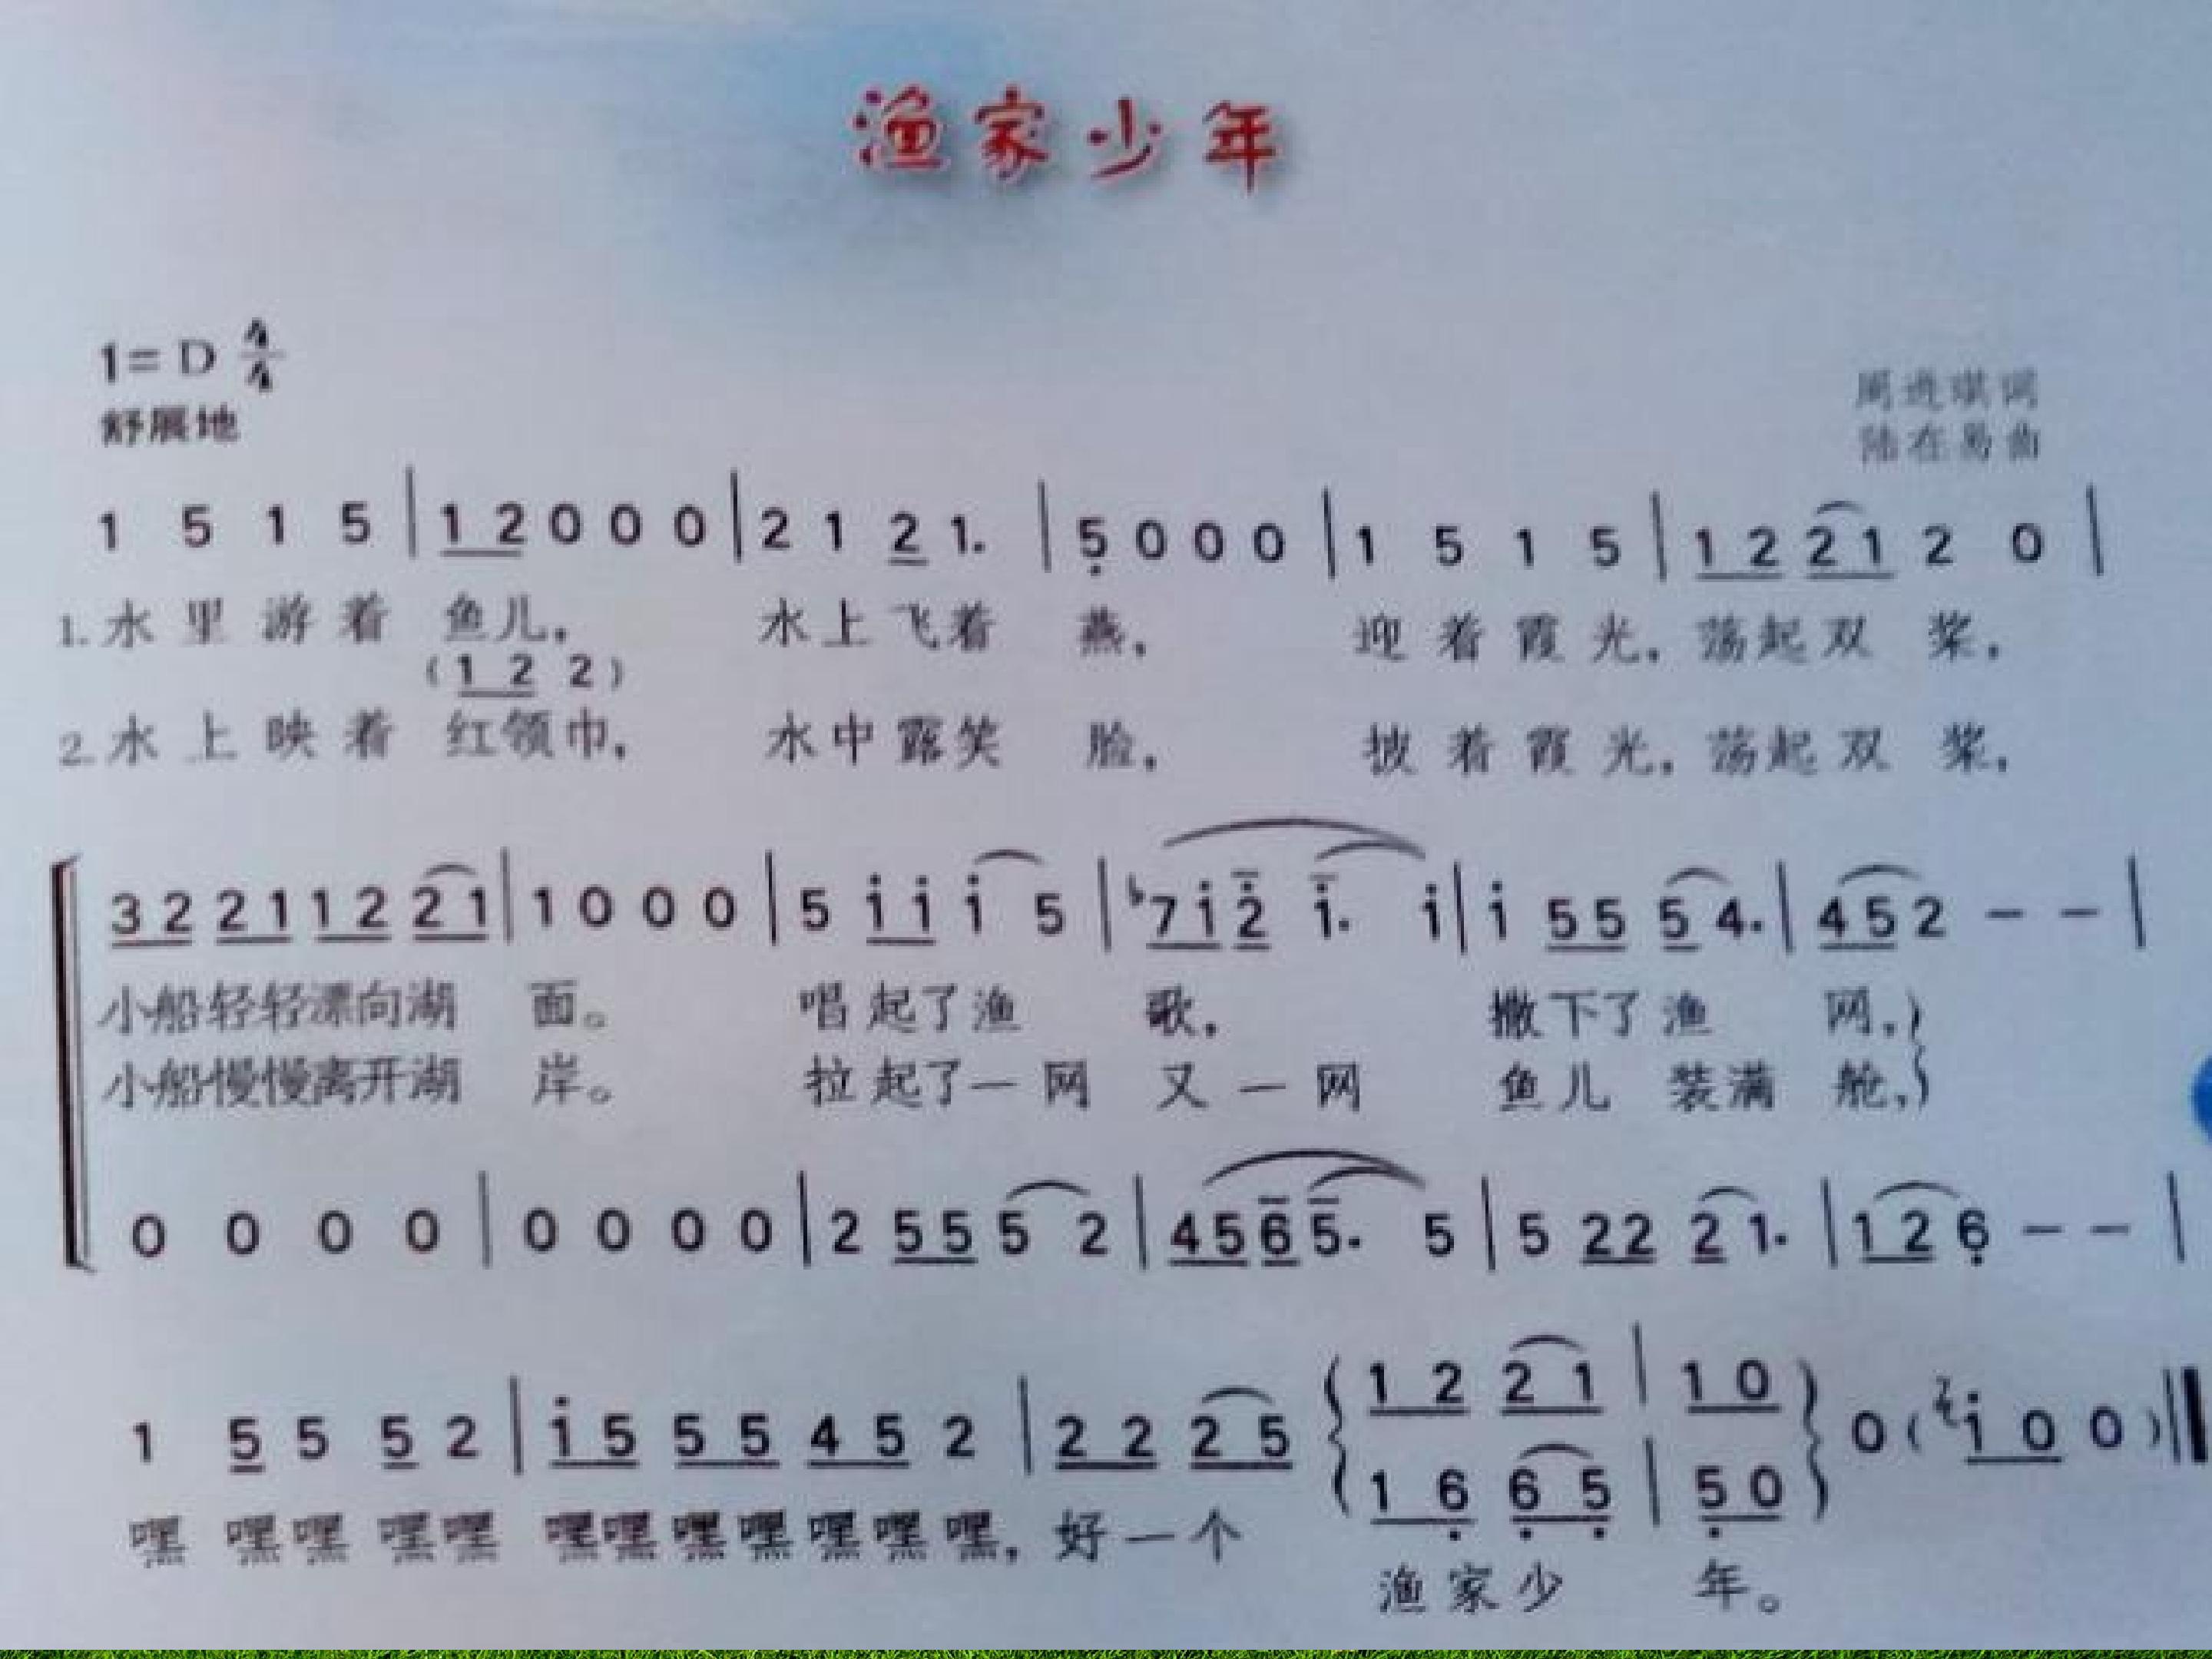 渔家少年
1= D 4/4
舒展地
周进琪词
陆在易曲
1 5 1 5 | 1 2 0 0 0 | 2 1 2 1. | 5 0 0 0 | 1 5 1 5 | 1 2 2 1 2 0 |
1. 水 里 游 着 鱼儿， 水上飞着 燕， 迎 着 霞 光，荡起双 桨，
( 1 2 2 )
2. 水 上 映 着 红领巾， 水中露笑 脸， 披 着 霞 光，荡起双 桨，
3 2 2 1 1 2 2 1 | 1 0 0 0 | 5 i i i 5 | ♭7 i 2 i. i | i 5 5 5 4. | 4 5 2 – – |
小船轻轻漂向湖 面。 唱起了渔 歌， 撒下了渔 网，
小船慢慢离开湖 岸。 拉起了一网 又一网 鱼儿装满 舱，
0 0 0 0 | 0 0 0 0 | 2 5 5 5 2 | 4 5 6 5. 5 | 5 2 2 2 1. | 1 2 6 – – |
1 2 2 1 | 1 0
1 5 5 5 2 | i 5 5 5 4 5 2 | 2 2 2 5 0 ( i 0 0 ) ‖
1 6 6 5 | 5 0
嘿 嘿嘿 嘿嘿 嘿嘿嘿嘿嘿嘿嘿，好一个
渔家少 年。